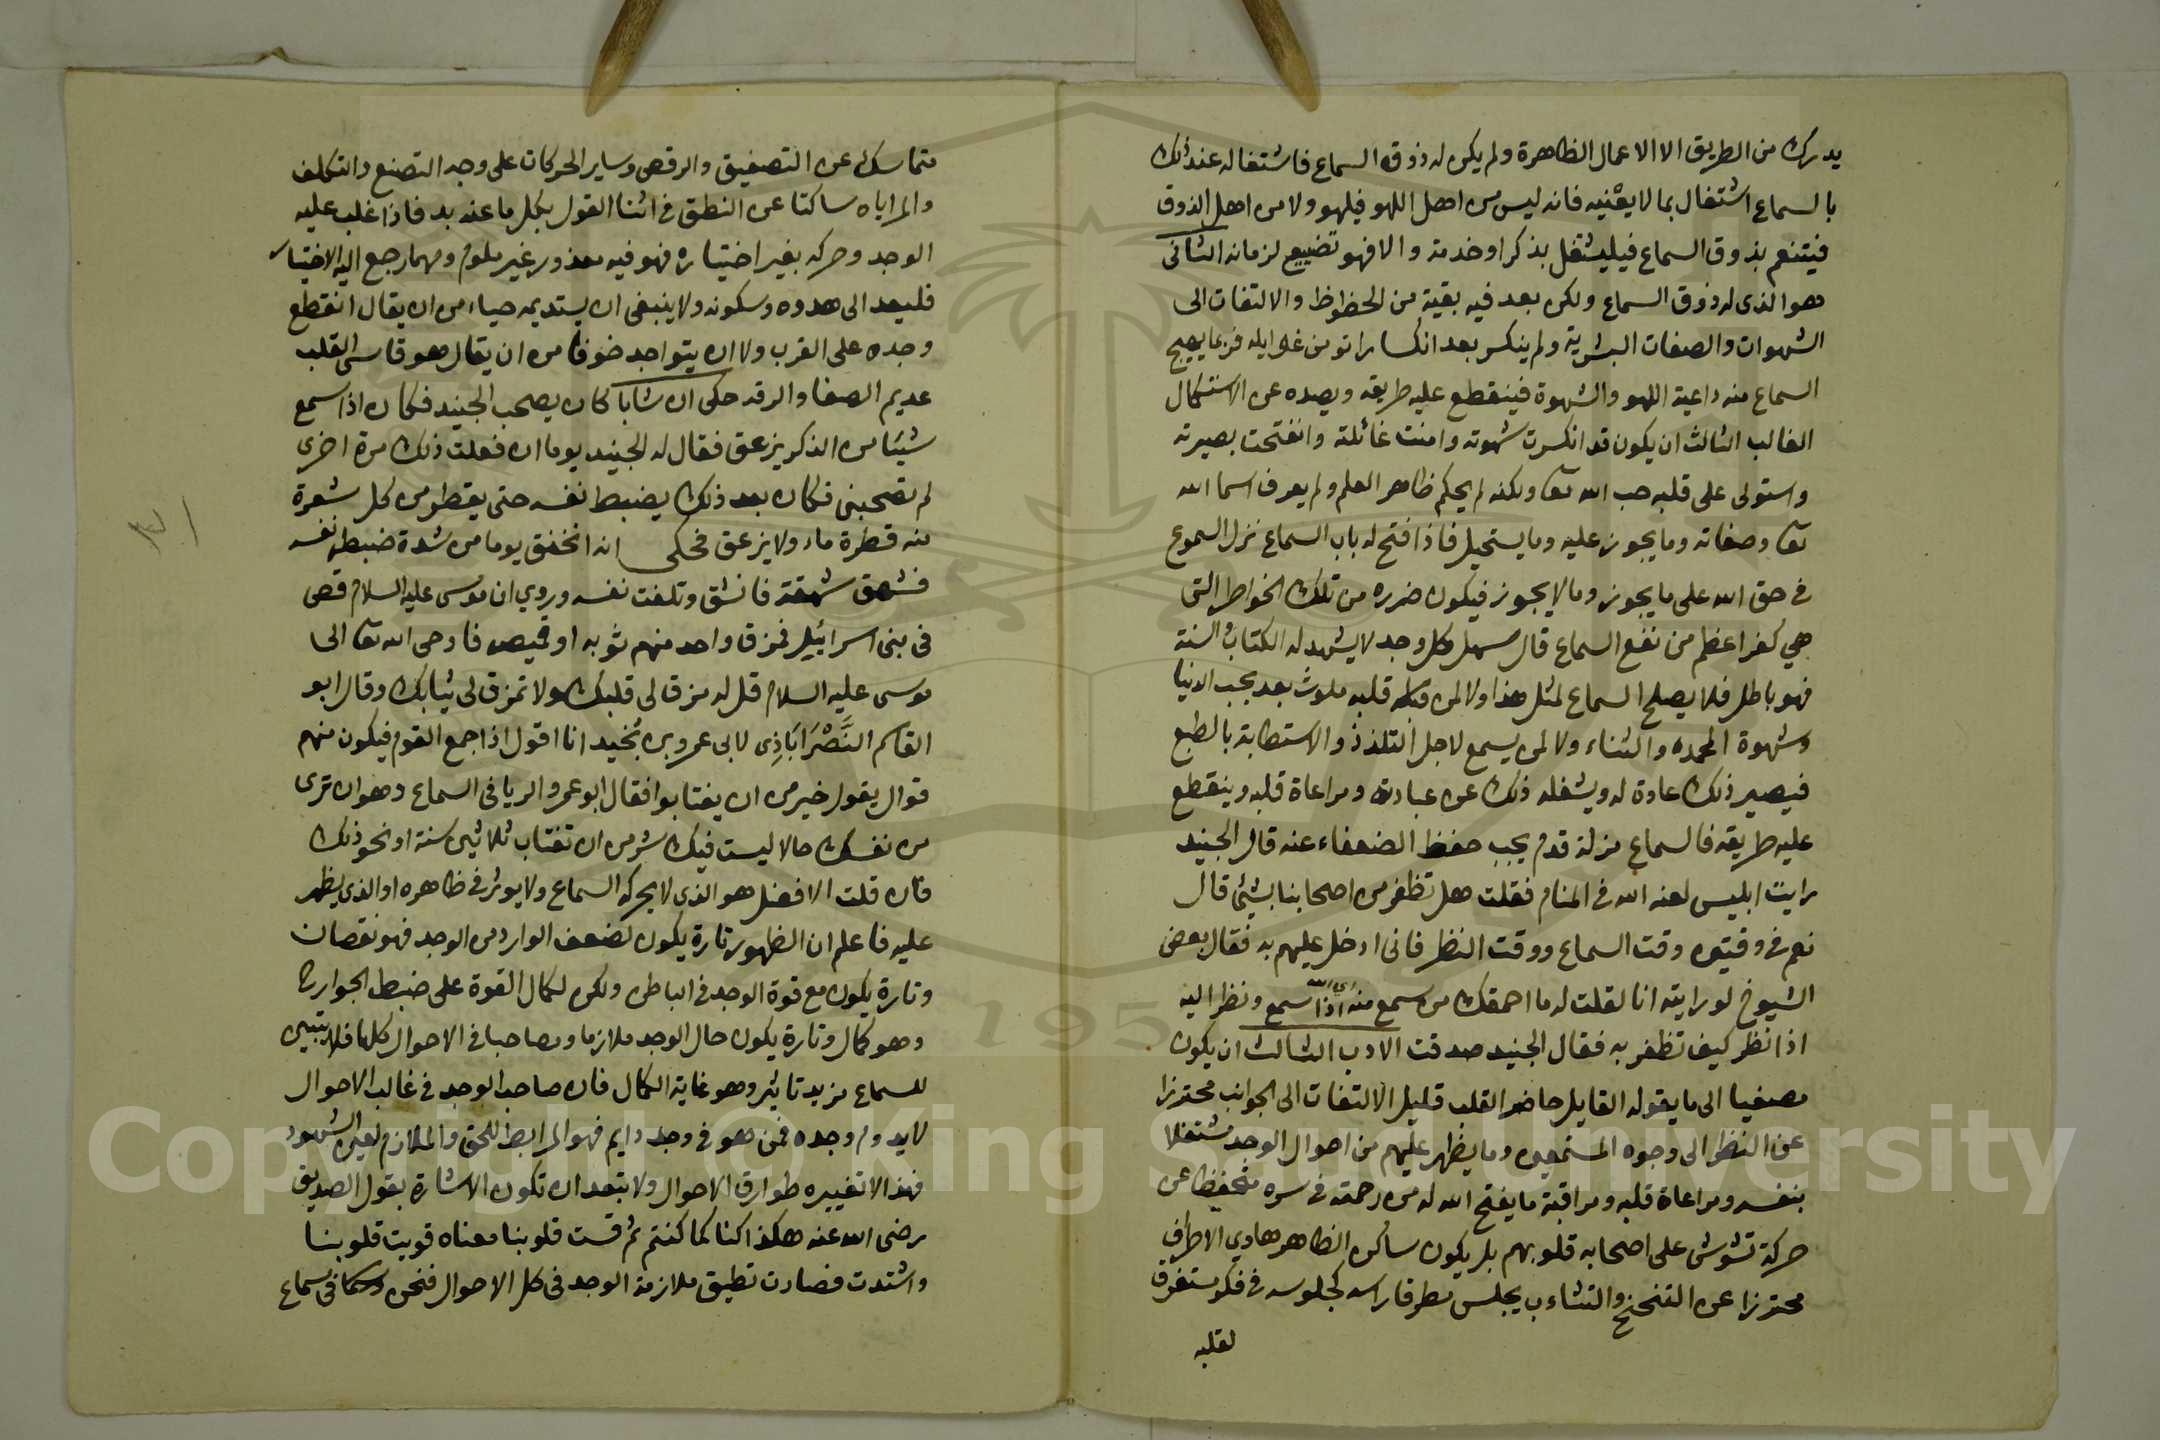 يدرك من الطريق الا الاعمال الظاهرة ولم يكن له ذوق السماع فاشتغاله عند ذلك
بالسماع اشتغال بما لا يعنيه فانه ليس من اهل اللهو فيلهو ولا من اهل الذوق
فيتنعم بذوق السماع فيليشتغل بذكر او خدمة والا فهو تضييع لزمانه الثانى
هو الذى له ذوق السماع ولكن بعد فيه بقية من الحظوظ والالتفات الى
الشهوات والصفات البشرية ولم ينكسر بعد انكسارا تومن غوايله فربما يهيج
السماع منه داعية اللهو والشهوة فينقطع عليه طريقه ويصده عن الاستكمال
الغالب الثالث ان يكون قد انكسرت شهوته وامنت غائلته وانفتحت بصيرته
واستولى على قلبه حب الله تعا ولكنه لم يحكم ظاهر العلم ولم يعرف اسما الله
تعا وصفاته وما يجوز عليه وما يستحيل فاذا فتح له باب السماع نزل السموع
فى حق الله على ما يجوز وما لا يجوز فيكون ضرره من تلك الخواطر التى
هي كفر اعظم من نفع السماع قال سهل وكل وجد لا يشهد له الكتاب والسنة
فهو باطل فلا يصلح السماع لمثل هذا ولا لمن قلبه ملوث بعد بحب الدنيا
وشهوة المحمدة والثناء ولا لمن يسمع لاجل التلذذ والاستطابة بالطبع
فيصير ذلك عادة له ويشغله ذلك عن عبادته ومراعاة قلبه وينقطع
عليه طريقه فالسماع مزلة قدم يجب حفظ الضعفاء عنه قال الجنيد
رايت ابليس لعنه الله فى المنام فقلت هل تظفر من اصحابنا بشيئ قال
نعم فى وقتين وقت السماع ووقت النظر فانى ادخل عليهم به فقال بعض
الشيوخ لو رايته انا لقلت له ما احمقك من سمع منه اذا سمع ونظر اليه
اذا نظر كيف تظفر به فقال الجنيد صدقت الادب الثالث ان يكون
مصغيا الى ما يقوله القايل حاضر القلب قليل الالتفات الى الجوانب محترزا
عن النظر الى وجوه المستمعين وما يظهر عليهم من احوال الوجد مشتغلا
بنفسه ومراعاة قلبه ومراقبة ما يفتح الله له من رحمته فى سره متحفظا عن
حركة تشوش على اصحابه قلوبهم بل يكون ساكن الظاهر هادي الاطراف
محترزا عن التنحنح والتثاءب يجلس مطرقا راسه كجلوسه فى فكر مستغرق
لقلبه
متماسكا عن التصفيق والرقص وساير الحركات على وجه التصنع والتكلف
والمراياه ساكتا عن النطق فى اثنا القول بكل ما عنه بد فاذا غلب عليه
الوجد وحركه بغير اختياره فهو فيه معذور غير ملوم ومهما رجع اليه الاختيار
فليعد الى هدوه وسكونه ولا ينبغى ان يستديمه حياء من ان يقال انقطع
وجده على القرب ولا ان يتواجد خوفا من ان يقال هو قاسى القلب
عديم الصفا والرقه حكى ان شابا كان يصحب الجنيد فكان اذا سمع
شيئا من الذكر يزعق فقال له الجنيد يوما ان فعلت ذلك مرة اخرى
لم تصحبنى فكان بعد ذلك يضبط نفسه حتى يقطر من كل شعرة
منه قطرة ماء ولا يزعق فحكى انه اختنق يوما من شدة ضبطه نفسه
فشهق شهقة فانشق وتلفت نفسه وروي ان موسى عليه السلام قص
فى بنى اسرائيل فمزق واحد منهم ثوبه او قميصه فاوحى الله تعا الى
موسى عليه السلام قل له مزق لى قلبك ولا تمزق لى ثيابك وقال ابو
القاسم النَّصْرَابَاذِى لابى عمرو بن نُجيد انا اقول اذا جمع القوم فيكون منهم
قوال يقول خير من ان يغتابوا فقال ابو عمرو الريا فى السماع وهو ان ترى
من نفسك حالا ليست فيك شر من ان تغتاب ثلاثين سنة او نحو ذلك
فان قلت الافضل هو الذى لا يحركه السماع ولا يوثر فى ظاهره او الذى يظهر
عليه فاعلم ان الظهور تارة يكون لضعف الوارد من الوجد فهو نقصان
وتارة يكون مع قوة الوجد فى الباطن ولكن لكمال القوة على ضبط الجوارح
وهو كمال وتارة يكون حال الوجد ملازما ومصاحبا فى الاحوال كلها فلا يتبين
للسماع مزيد تاثير وهو غاية الكمال فان صاحب الوجد فى غالب الاحوال
لا يدوم وجده فمن هو فى وجد دايم فهو المرابط للحق والملازم لعين الشهود
فهذا لا تغييره طوارق الاحوال ولا تبعد ان تكون الاشارة بقول الصديق
رضى الله عنه هكذا كنا كما كنتم ثم قست قلوبنا معناه قويت قلوبنا
واشتدت فصارت تطيق ملازمة الوجد فى كل الاحوال فنحن فى سماع
Copyright © King Saud University
195